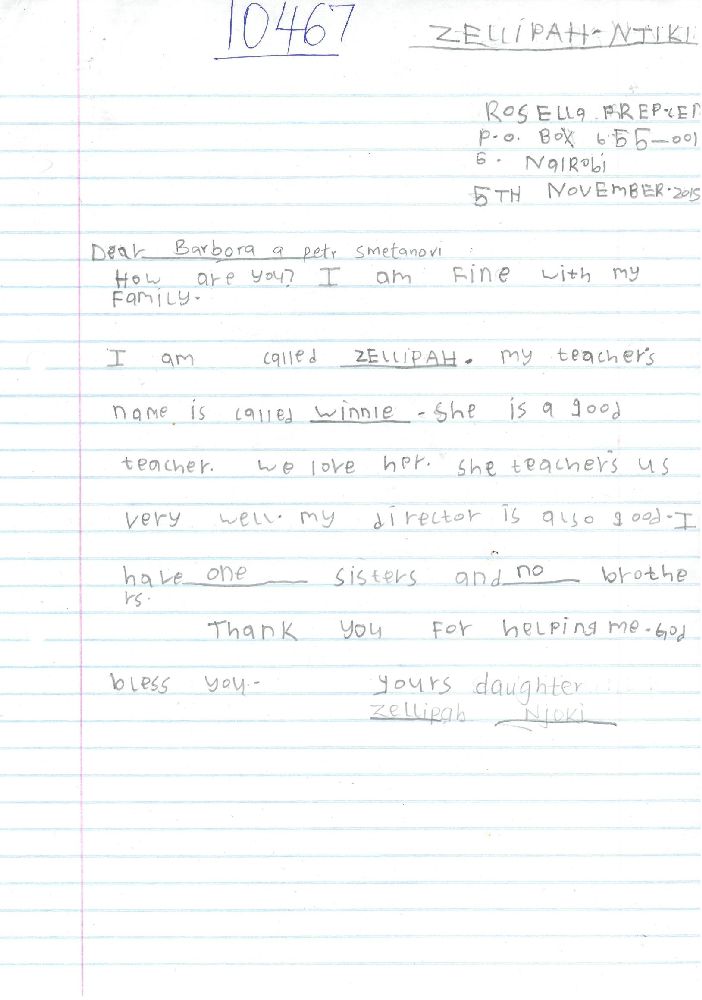 10467
ZELLIPAH-NJIKI
ROSELLA PREP
P.O. BOX 655-001
5. NAIROBI
5TH NOVEMBER.2015
Dear Barbora a petr smetanovi
How are you? I am Fine with my
Family.
I am called ZELLIPAH. my teacher's
name is called winnie - she is a good
teacher. we love her. she teacher's us
very well. my director is also good-I
have one sisters and no brothe
rs.
Thank you For helping me-God
bless you- yours daughter
zellipah Njoki